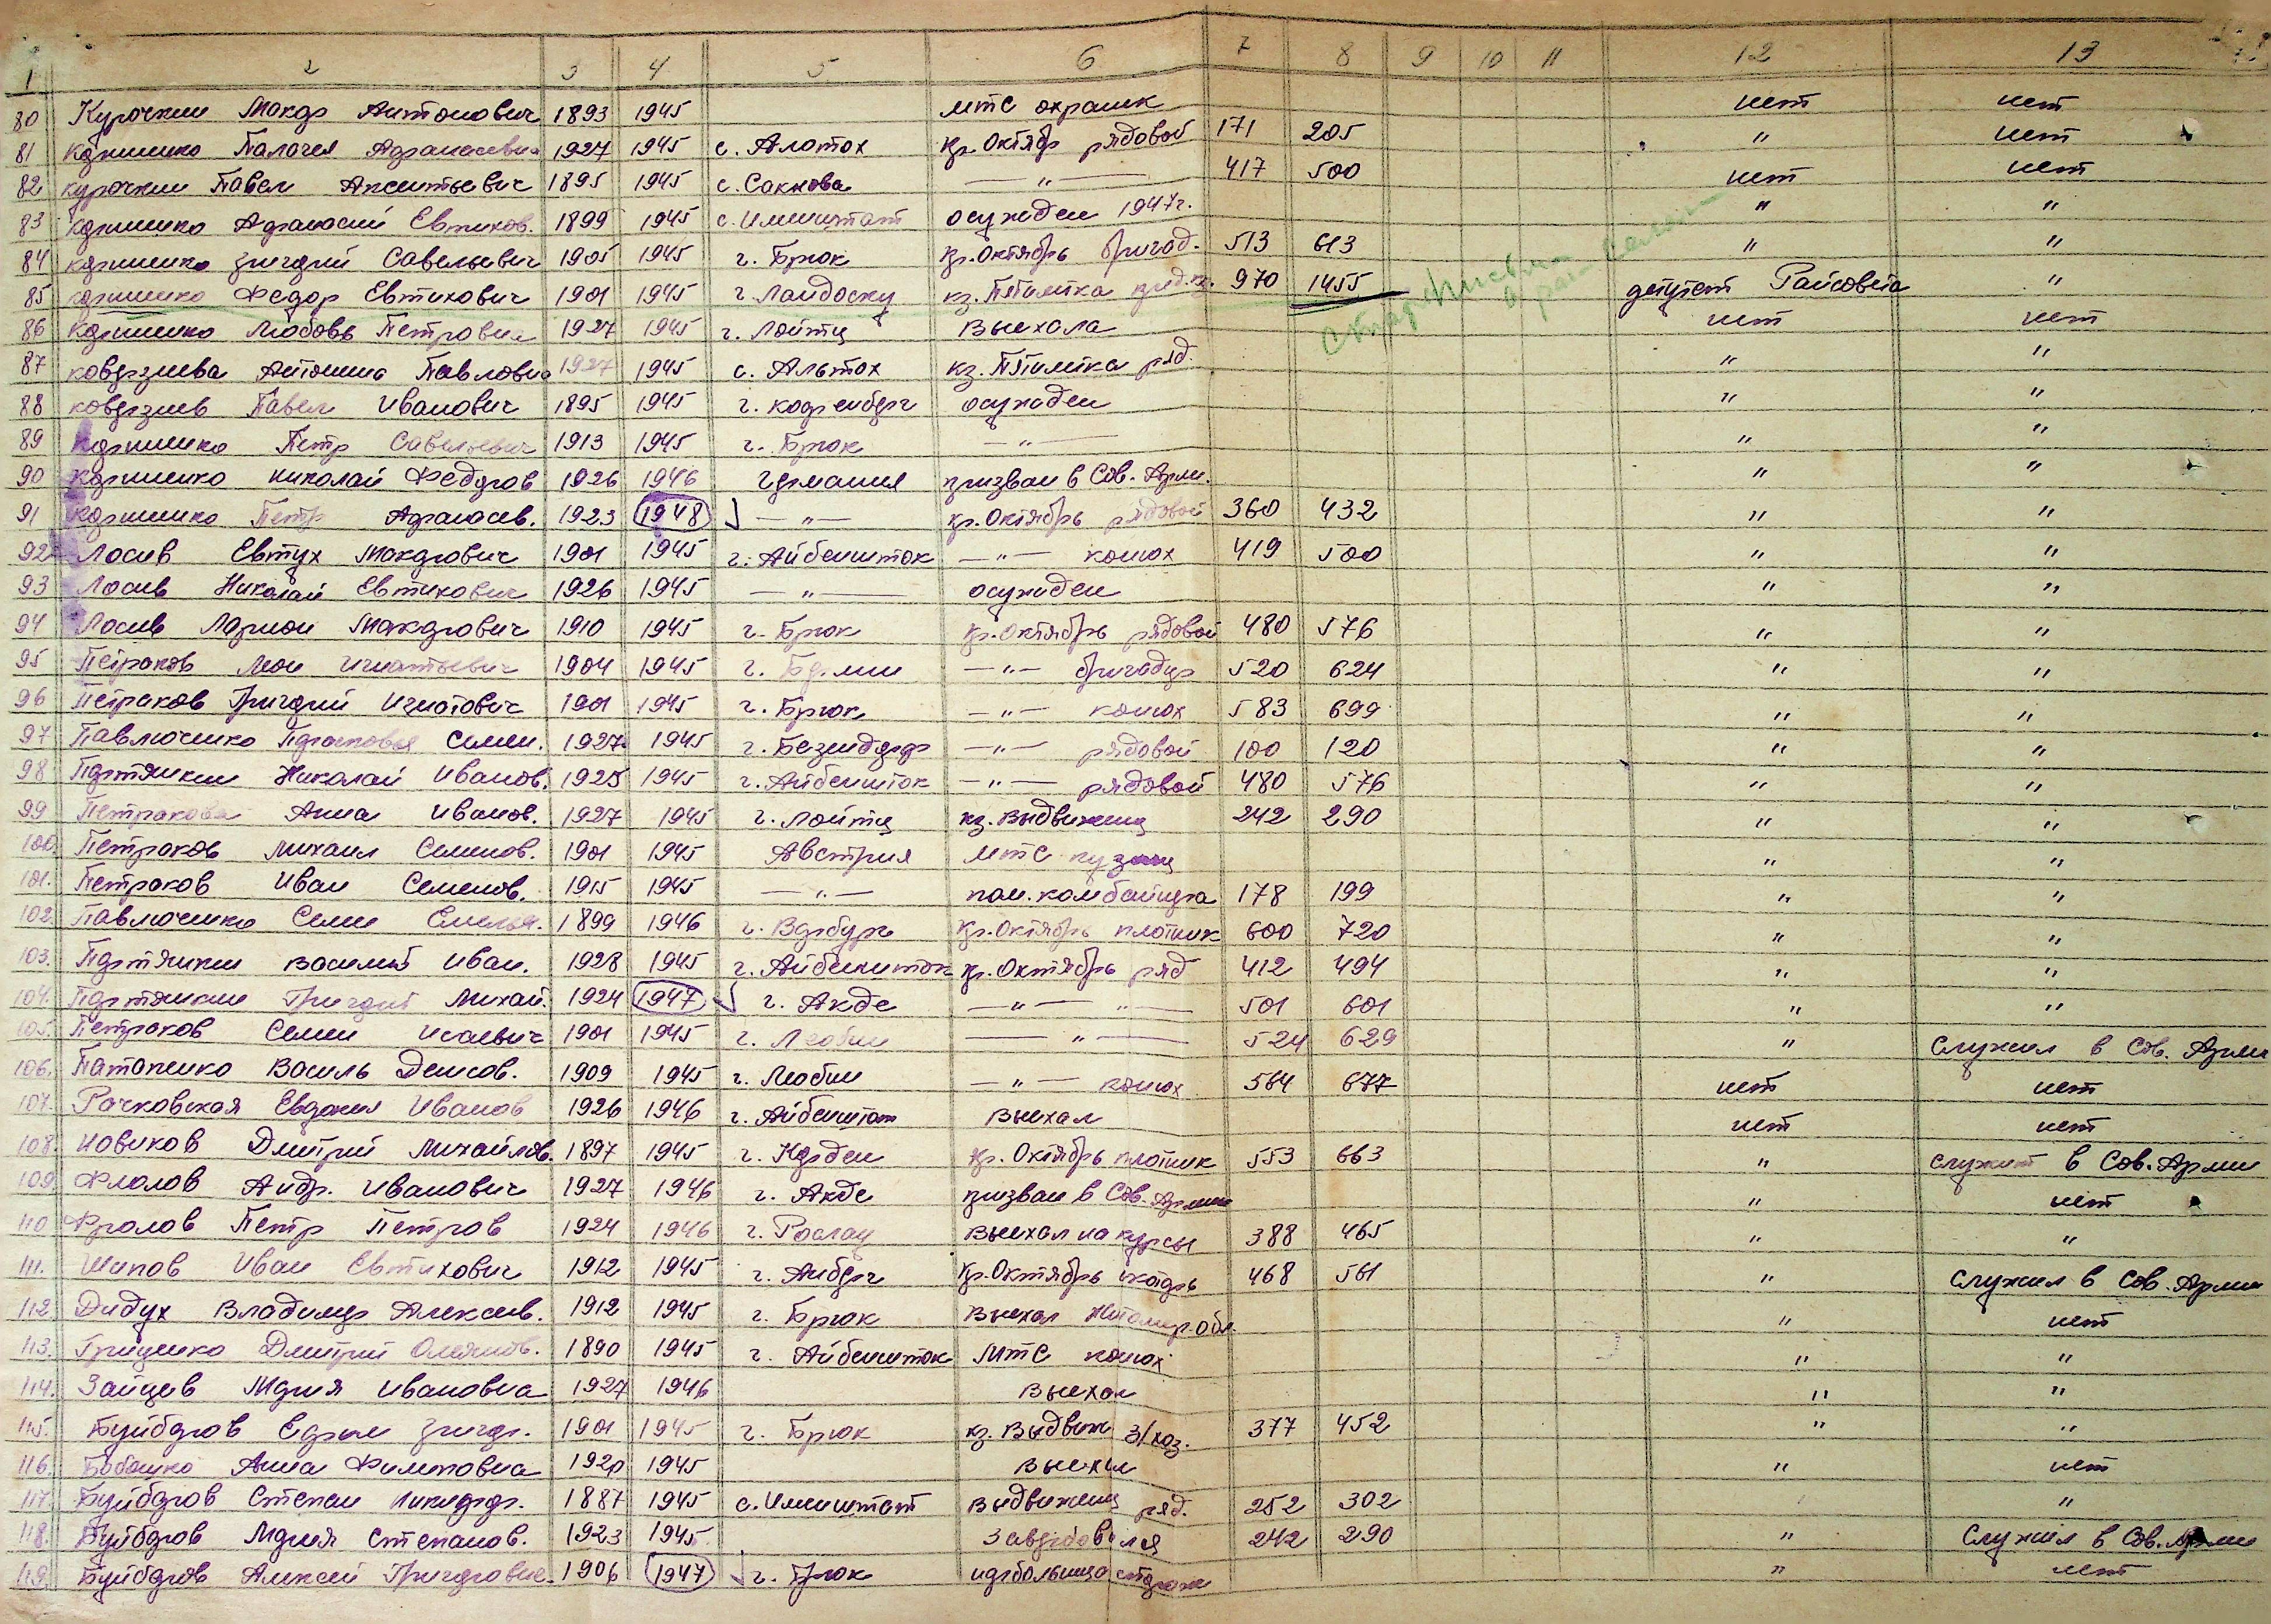 1 2 3 4 5 6 7 8 9 10 11 12 13
80 Курочкин Макар Антонович 1893 1945 МТС охраник нет нет
81 Карпенко Палагея Афанасевна 1927 1945 с. Алотох кр. Октябр рядовой 171 205 " нет
82 Курочкин Павел Аксентьевич 1895 1945 с. Сакнова — " — 417 500 нет нет
83 Афанасий Евтихов. 1899 1945 с. Имништат осужден 1947г. " "
84 Григорий Савельевич 1905 1945 г. Брюк Кр. Октябрь бригад. 513 613 " "
85 Федор Евтихович 1901 1945 г. Ландоску кз. Пятилетка 970 1455 депутат Райсовета "
86 Любовь Петровна 1927 1945 г. Лойтц Выехала нет нет
87 Коверзнева Антонина Павловна 1927 1945 с. Альтох кз. Пятилетка ряд. " "
88 Коверзнев Павел Иванович 1895 1945 осужден " "
89 Петр Савельевич 1913 1945 г. Брюк — " — " "
90 Николай Федоров 1926 1946 Германия призван в Сов. Арми. " "
91 Петр Афанасев. 1923 1948 — " — кр. Октябрь рядовой 360 432 " "
92 Лосев Евтух Макарович 1901 1945 г. Айбеншток — " — конюх 419 500 " "
93 Лосев Николай Евтихович 1926 1945 — " — осужден " "
94 Лосев Ларион Макарович 1910 1945 г. Брюк Кр. Октябрь рядовой 480 576 " "
95 Петраков Мои Игнатьевич 1904 1945 г. Берлин — " — бригадир 520 624 " "
96 Петраков Григорий Игнатович 1901 1945 г. Брюк — " — конюх 583 699 " "
97 Павлюченко Семен. 1927 1945 — " — рядовой 100 120 " "
98 Портянкин Николай Иванов. 1925 1945 г. Айбеншток — " — рядовой 480 576 " "
99 Петракова Анна Иванов. 1927 1945 г. Лойтц кз. Выдвиженец 242 290 " "
100. Петраков Михаил Семенов. 1901 1945 Австрия МТС кузнец " "
101. Петраков Иван Семенов. 1915 1945 — " — пом. комбайнера 178 199 " "
102. Павлюченко Семен Емелья. 1899 1946 г. Варбург Кр. Октябрь плотник 600 720 " "
103. Портянкин Василий Иван. 1928 1945 г. Айбеншток Кр. Октябрь ряд 412 494 " "
104. Портянкин Григорий Михай. 1924 1947 г. Акде — " — " — 501 601 " "
105. Петраков Семен Исаевич 1901 1945 г. Леобин — " — 524 629 " Служил в Сов. Арми
106. Патапенко Василь Денисов. 1909 1945 г. Любин — " — конюх 564 677 нет нет
107. Рачковская Евдокия Иванов 1926 1946 г. Айбенштат Выехал нет нет
108. Новиков Дмитрий Михайлов. 1897 1945 г. Нарден Кр. Октябрь плотник 553 663 " Служит в Сов. Арми
109. Флолов Андр. Иванович 1927 1946 г. Акде призван в Сов. Армию " нет
110 Фролов Петр Петров 1924 1946 г. Рослац Выехал на курсы 388 465 " "
111. Шипов Иван Евтихович 1912 1945 г. Анберг Кр. Октябрь 468 561 " Служил в Сов. Арми
112. Дидух Владимир Алексеев. 1912 1945 г. Брюк Выехал Житомир. обл. " нет
113. Гриценко Дмитрий 1890 1945 г. Айбеншток МТС конюх " "
114. Зайцев Мария Ивановна 1927 1946 Выехал " "
115. Буйдаров Ефрем Григор. 1901 1945 г. Брюк кз. Выдвиж з/хоз. 377 452 " "
116. Анна Филиповна 1920 1945 Выехал " нет
117. Буйбаров Степан Никифор. 1887 1945 с. Имништат Выдвиженец ряд. 252 302 "
118. Буйбаров Мария Степанов. 1923 1945 Завербовался 242 290 " Служил в Сов. Арми
119. Буйбаров Алексей Григорович. 1906 1947 г. Брюк нарбольница сторож " нет